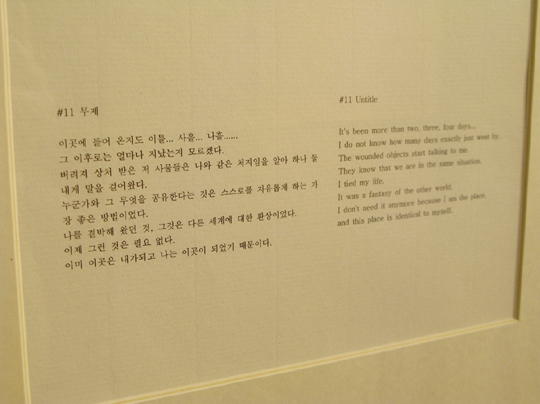 #11 무제
이곳에 들어 온지도 이틀... 사흘... 나흘......
그 이후로는 얼마나 지났는지 모르겠다.
버려져 상처 받은 저 사물들은 나와 같은 처지임을 알아 하나 둘
내게 말을 걸어왔다.
누군가와 그 무엇을 공유한다는 것은 스스로를 자유롭게 하는 가
장 좋은 방법이었다.
나를 결박해 왔던 것, 그것은 다른 세계에 대한 환상이었다.
이제 그런 것은 필요 없다.
이미 이곳은 내가되고 나는 이곳이 되었기 때문이다.
#11 Untitle
It's been more than two, three, four days...
I do not know how many days exactly just went by.
The wounded objects start talking to me.
They know that we are in the same situation.
I tied my life.
It was a fantasy of the other world.
I don't need it anymore because I am the place,
and this place is identical to myself.